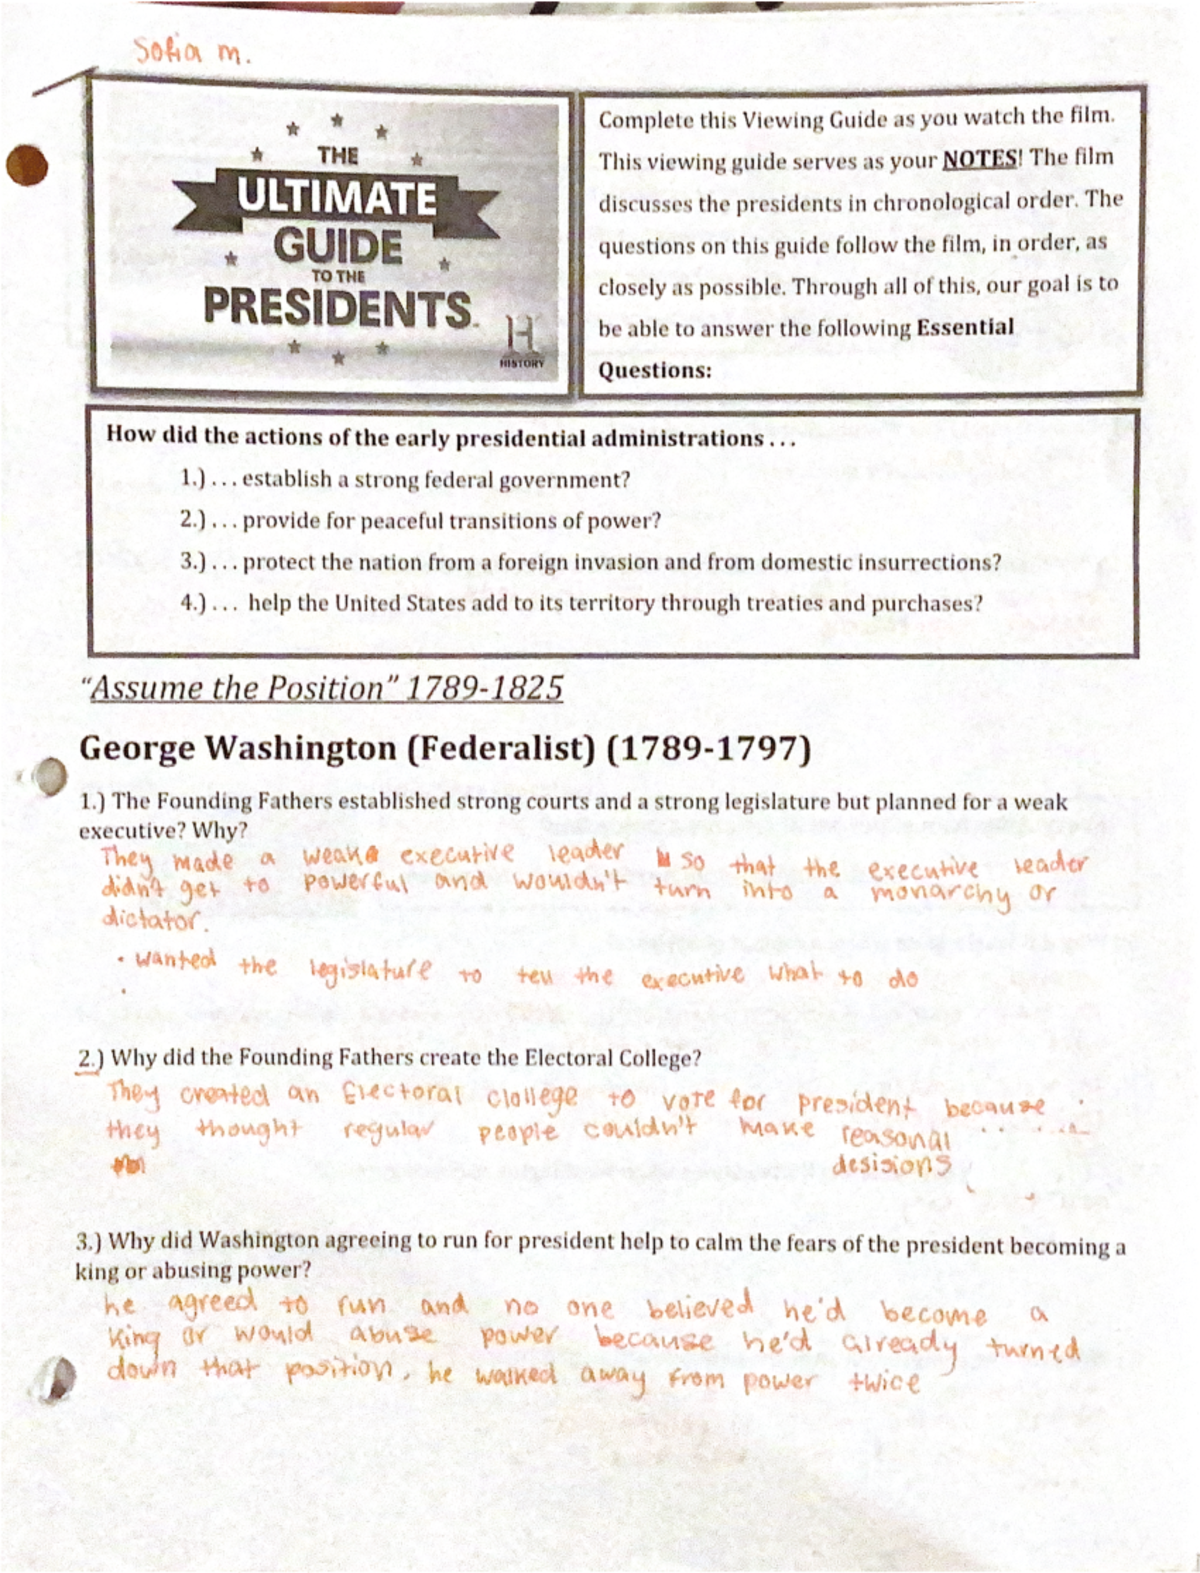 Sofia m.
THE
ULTIMATE
GUIDE
TO THE
PRESIDENTS
H
HISTORY
Complete this Viewing Guide as you watch the film.
This viewing guide serves as your NOTES! The film
discusses the presidents in chronological order. The
questions on this guide follow the film, in order, as
closely as possible. Through all of this, our goal is to
be able to answer the following Essential
Questions:
How did the actions of the early presidential administrations . . .
1.) . . . establish a strong federal government?
2.) . . . provide for peaceful transitions of power?
3.) . . . protect the nation from a foreign invasion and from domestic insurrections?
4.) . . . help the United States add to its territory through treaties and purchases?
"Assume the Position" 1789-1825
George Washington (Federalist) (1789-1797)
1.) The Founding Fathers established strong courts and a strong legislature but planned for a weak
executive? Why?
They made a weak executive leader so that the executive leader
didn't get to powerful and wouldn't turn into a monarchy or
dictator.
• wanted the legislature to tell the executive what to do
2.) Why did the Founding Fathers create the Electoral College?
They created an Electoral clollege to vote for president because
they thought regular people couldn't make reasonal
desisions
3.) Why did Washington agreeing to run for president help to calm the fears of the president becoming a
king or abusing power?
he agreed to run and no one believed he'd become a
king or would abuse power because he'd already turned
down that position, he walked away from power twice